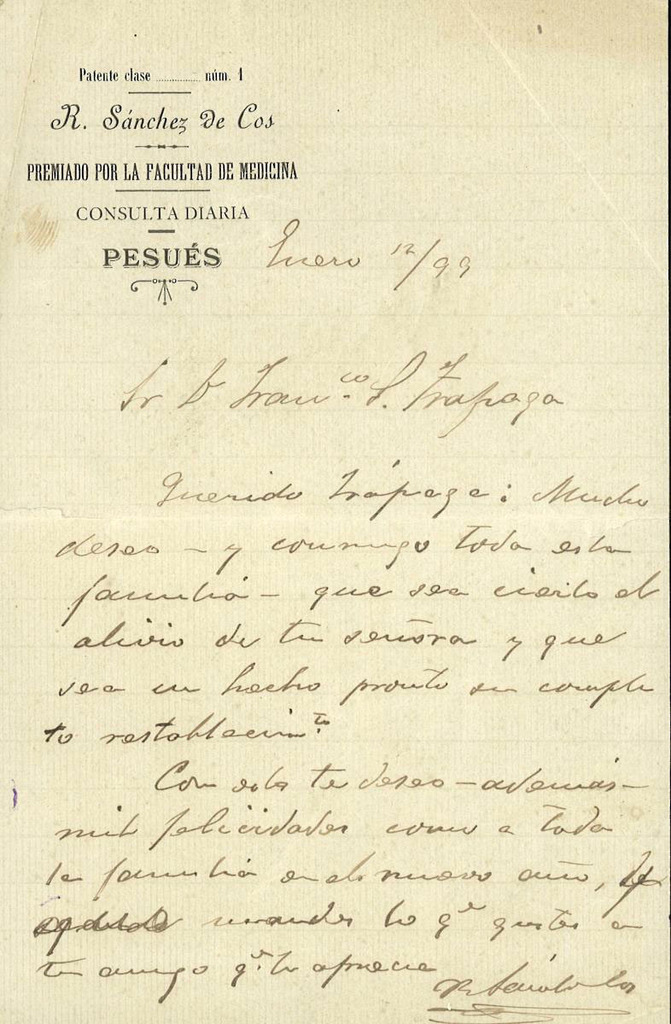 Patente clase ............ núm. 1
R. Sánchez de Cos
PREMIADO POR LA FACULTAD DE MEDICINA
CONSULTA DIARIA
PESUÉS
Enero 12/99
Sr D Franco. S. Trápaga
Querido Trápaga: Mucho
deseo - y conmigo toda esta
familia - que sea cierto el
alivio de tu señora y que
sea un hecho pronto su comple
to restablecimto.
Con esto te deseo - además -
mil felicidades como a toda
la familia en el nuevo año,
mandes lo qe. gustes a
tu amigo qe. te aprecia
R Sánchz de Cos